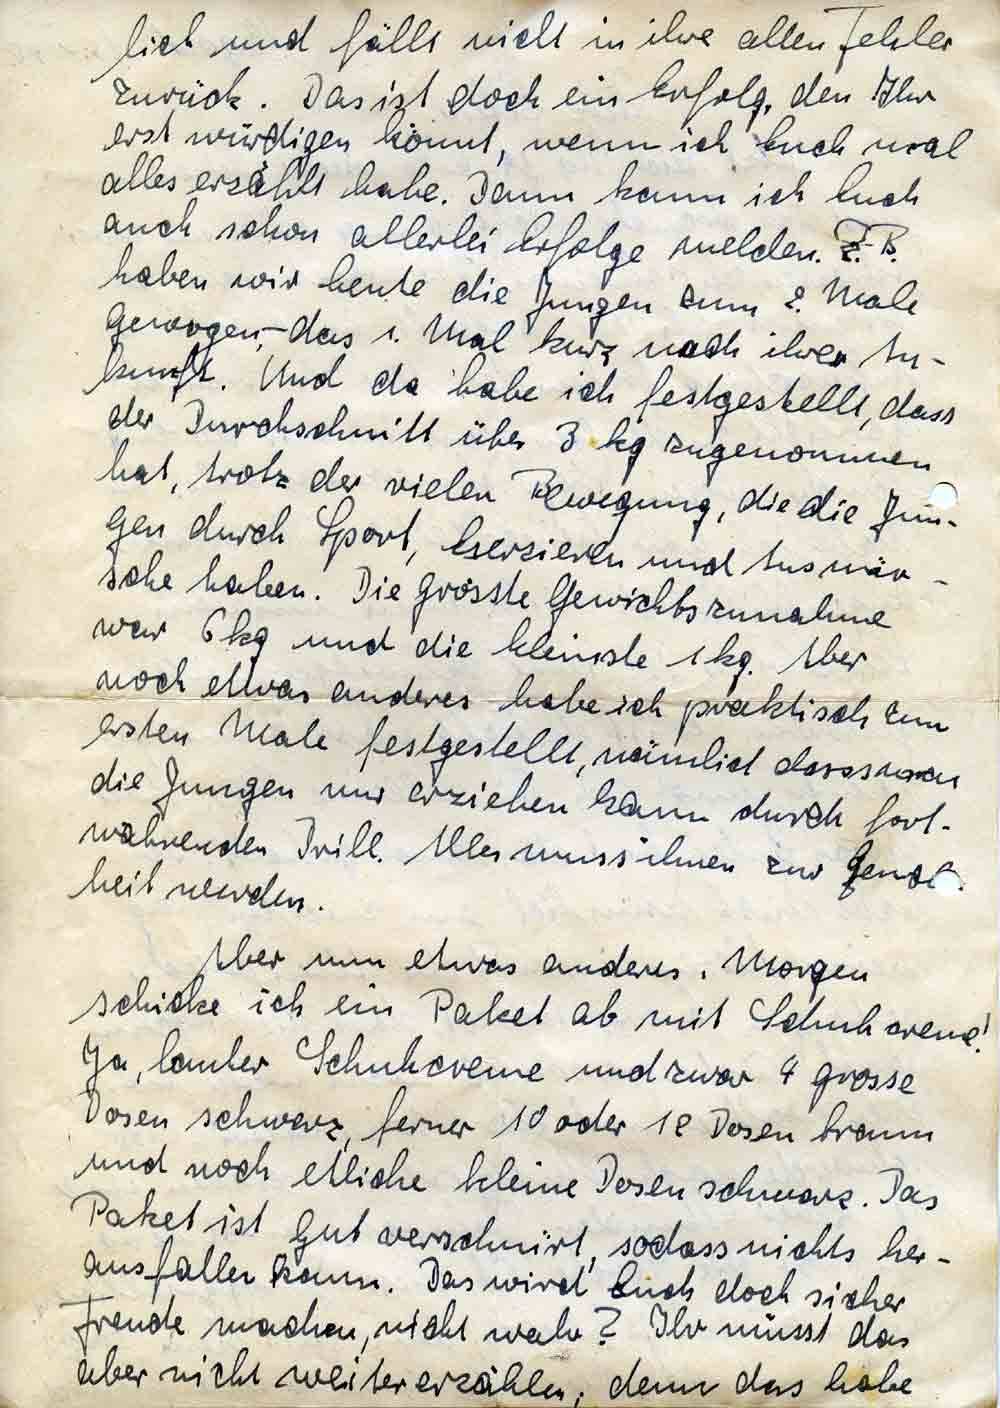 lich und fällt nicht in ihre alten Fehler
zurück. Das ist doch ein Erfolg, den Ihr
erst würdigen könnt, wenn ich Euch mal
alles erzählt habe. Dann kann ich Euch
auch schon allerlei Erfolge melden. Z.B.
haben wir heute die Jungen zum 2. Male
gewogen, das 1. Mal kurz nach ihrer An-
kunft. Und da habe ich festgestellt, dass
der Durchschnitt über 3 kg zugenommen
hat, trotz der vielen Bewegung, die die Jun-
gen durch Sport, Exerzieren und Ausmär-
sche haben. Die grösste Gewichtszunahme
war 6 kg und die kleinste 1 kg. Aber
noch etwas anderes habe ich praktisch zum
ersten Male festgestellt, nämlich dass man
die Jungen nur erziehen kann durch fort-
währenden Drill. Alles muss ihnen zur Gewohn-
heit werden.
Aber nun etwas anderes. Morgen
schicke ich ein Paket ab mit Schuhcreme!
Ja, lauter Schuhcreme und zwar 4 grosse
Dosen schwarz, ferner 10 oder 12 Dosen braun
und noch etliche kleine Dosen schwarz. Das
Paket ist gut verschnürt, sodass nichts her-
ausfallen kann. Das wird Euch doch sicher
Freude machen, nicht wahr? Ihr müsst das
aber nicht weitererzählen, denn das habe